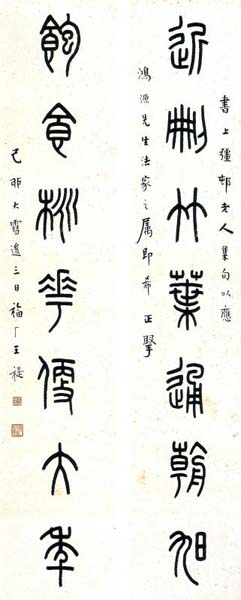 近刪竹葉通朝旭
書上彊邨老人集句以應
鴻源先生法家之属即希 正
飽食桃花便大年
己卯大雪後三日福厂王禔